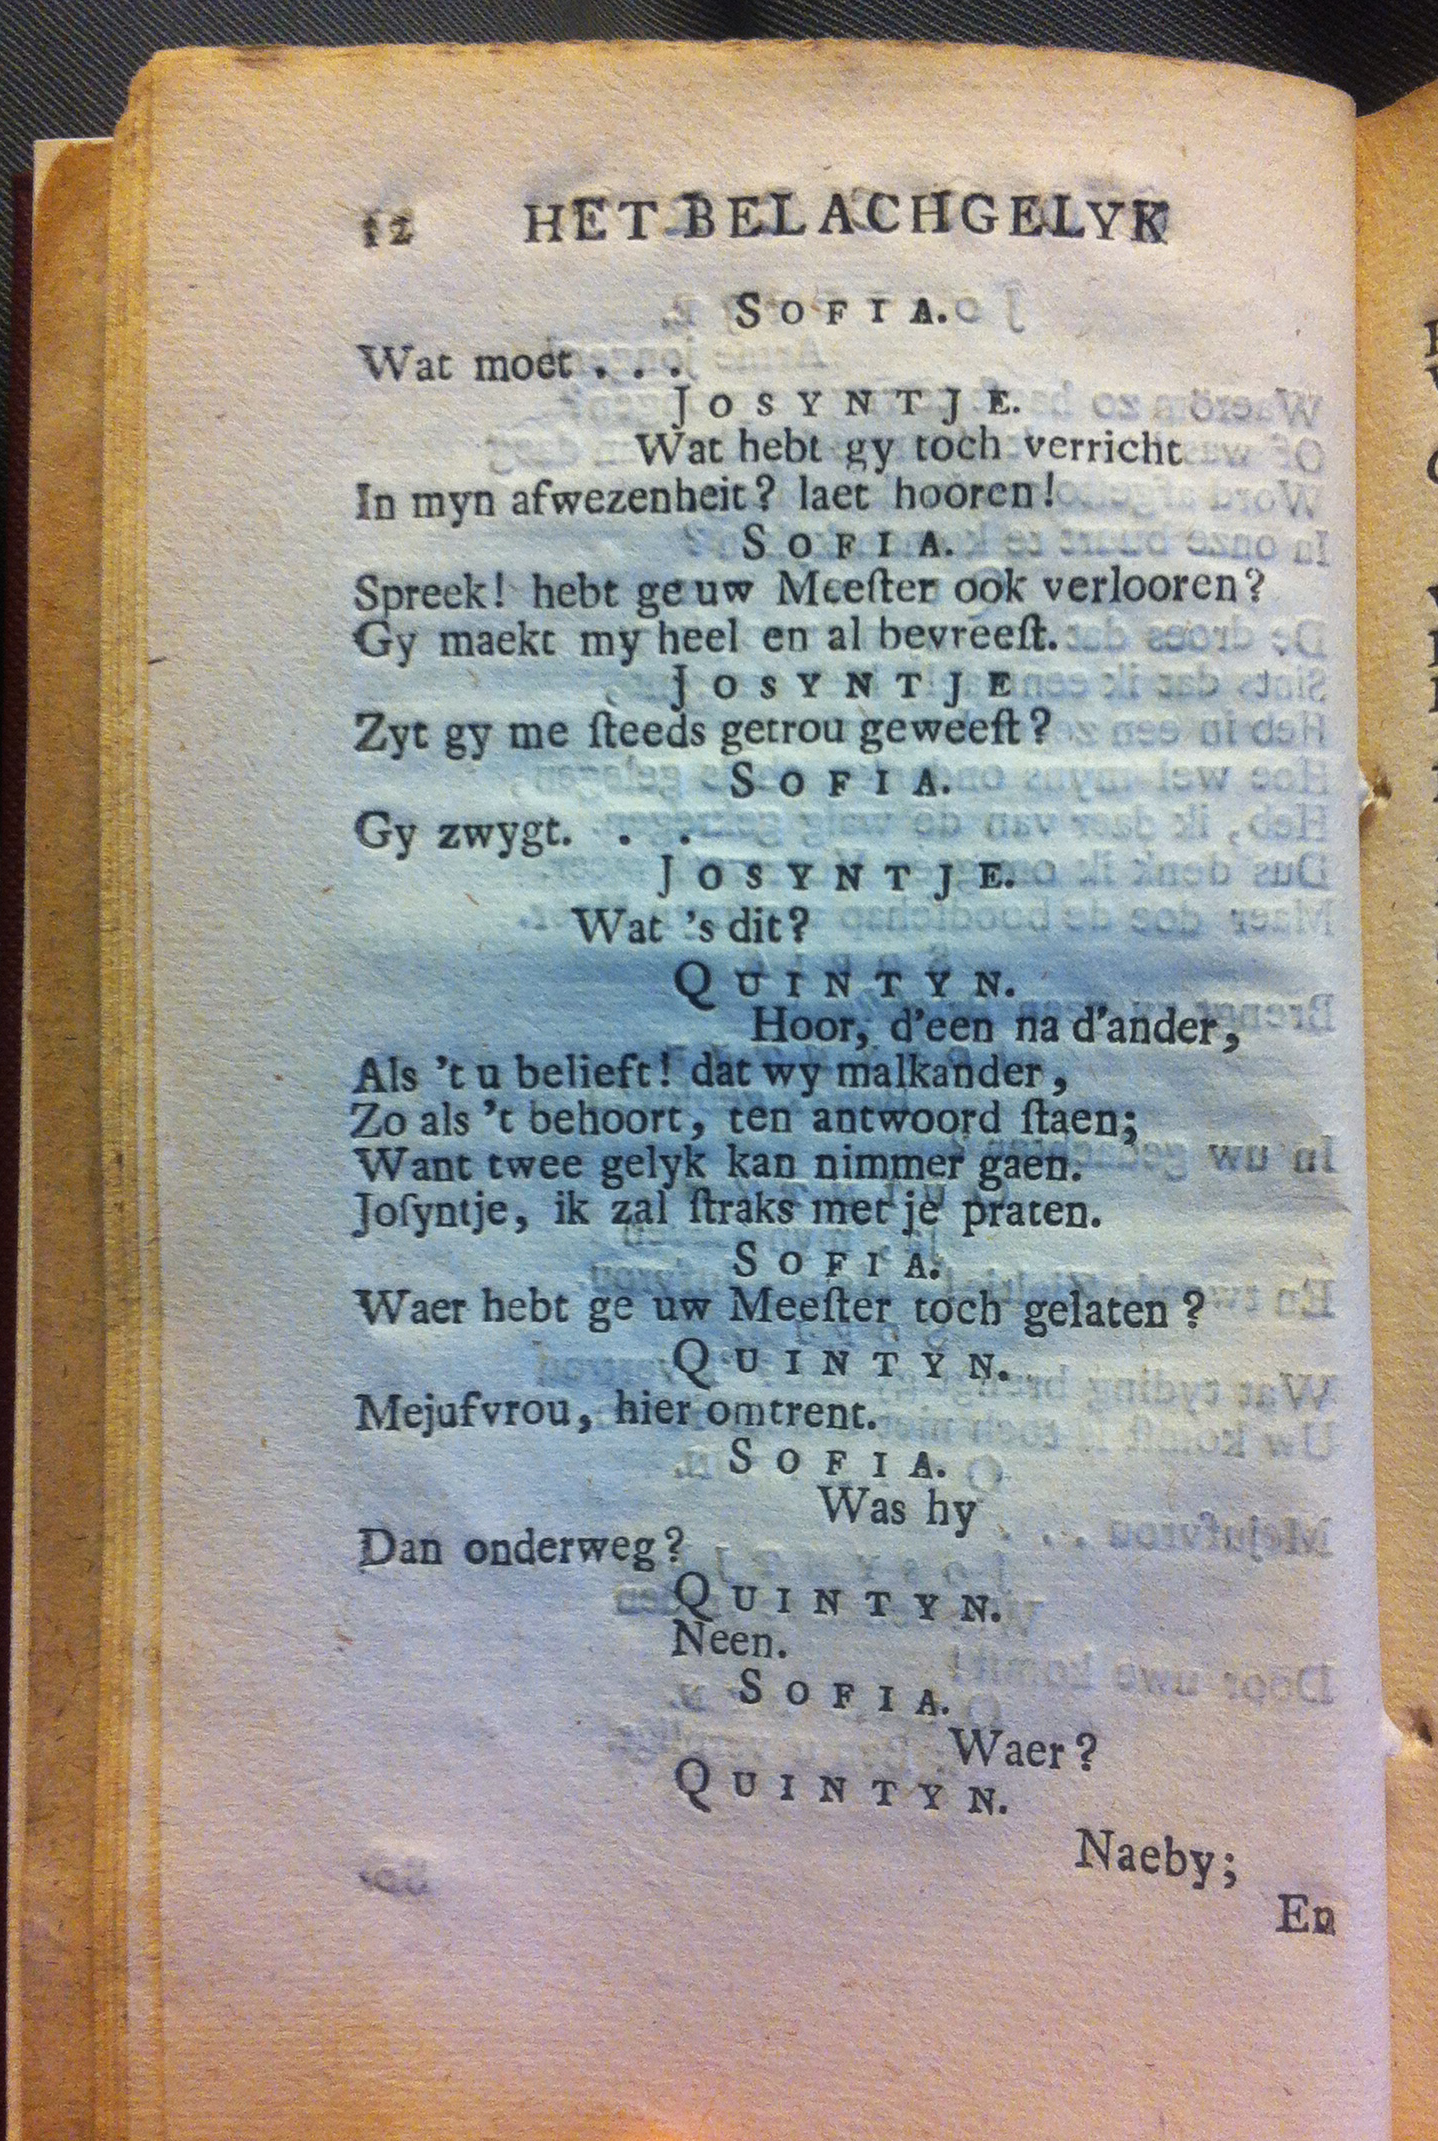 12 HET BELACHGELYK
SOFIA.
Wat moet . . .
JOSYNTJE.
Wat hebt gy toch verricht
In myn afwezenheit? laet hooren!
SOFIA.
Spreek! hebt ge uw Meeſter ook verlooren?
Gy maekt my heel en al bevreeſt.
JOSYNTJE
Zyt gy me ſteeds getrou geweeſt?
SOFIA.
Gy zwygt. . .
JOSYNTJE.
Wat 's dit?
QUINTYN.
Hoor, d'een na d'ander,
Als 't u belieft! dat wy malkander,
Zo als 't behoort, ten antwoord ſtaen;
Want twee gelyk kan nimmer gaen.
Joſyntje, ik zal ſtraks met je praten.
SOFIA.
Waer hebt ge uw Meeſter toch gelaten?
QUINTYN.
Mejufvrou, hier omtrent.
SOFIA.
Was hy
Dan onderweg?
QUINTYN.
Neen.
SOFIA.
Waer?
QUINTYN.
Naeby;
En